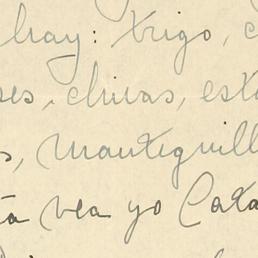 hay: trigo, c
ses, chivas, est
s, mantequill
ta vea yo Cata